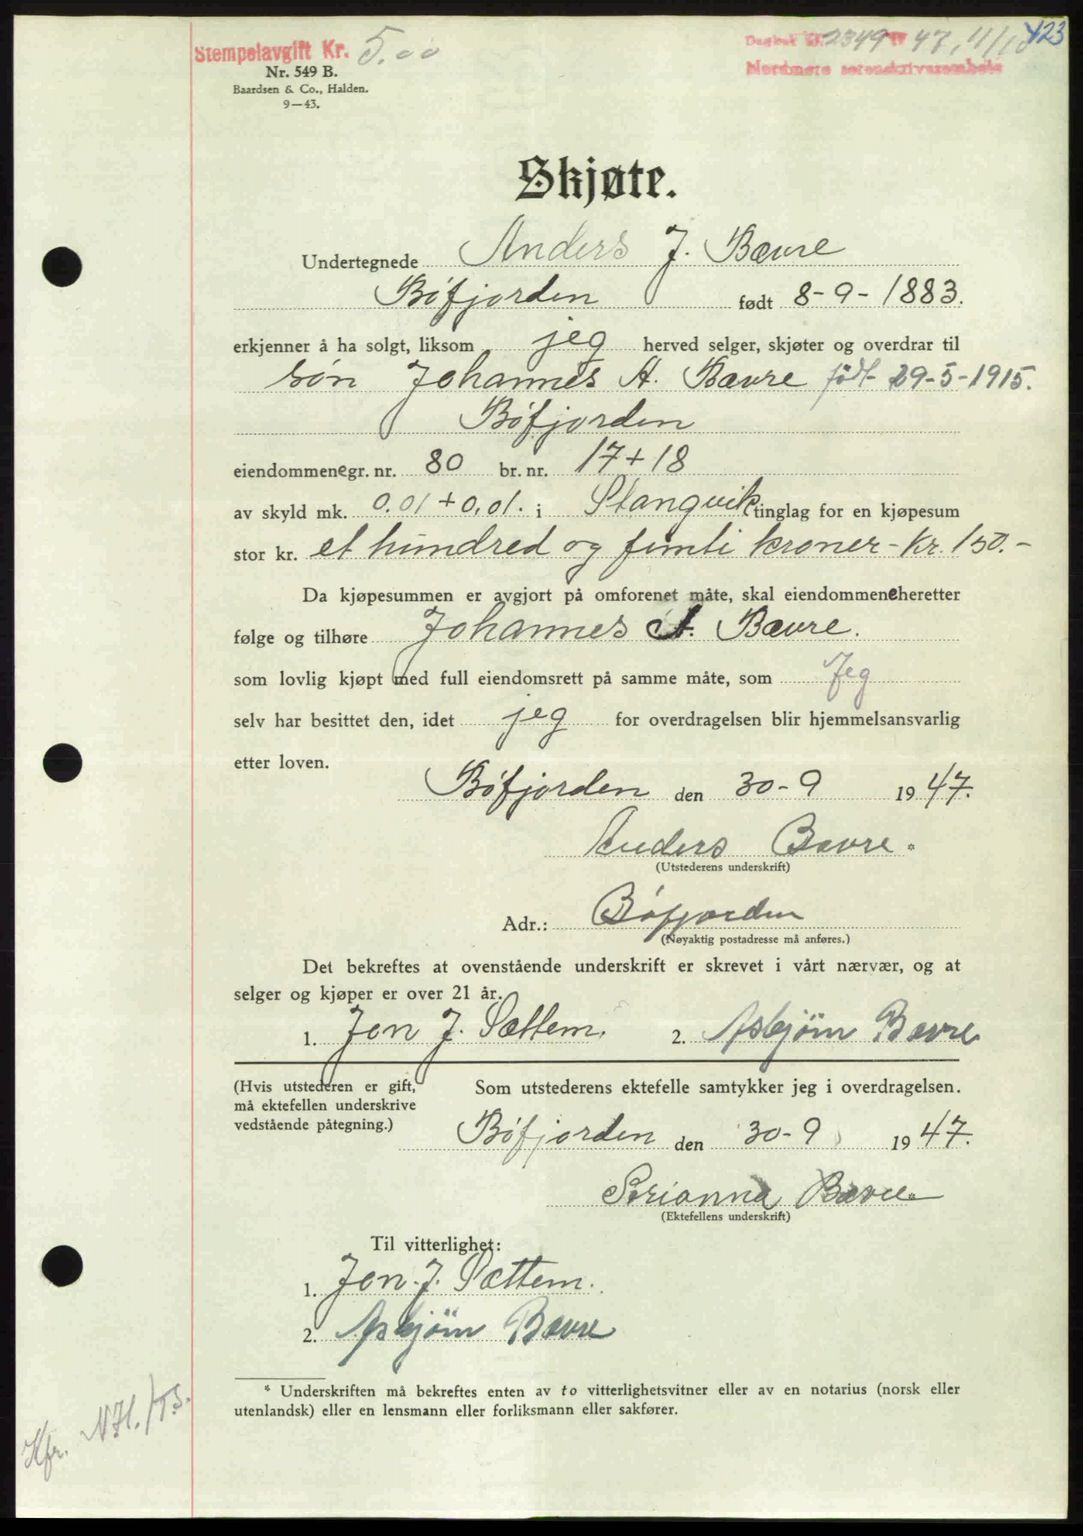 Stempelavgift Kr. 5.00
Dagbok nr. 2349 47, 11/10 423
Nordmøre sorenskriverembete
Nr. 549 B.
Baardsen & Co., Halden.
9—43.
Skjøte.
Undertegnede Anders J. Bævre
Böfjorden født 8-9-1883.
erkjenner å ha solgt, liksom jeg herved selger, skjøter og overdrar til
søn Johannes A. Bævre født 29-5-1915.
Böfjorden
eiendommene gr. nr. 80 br. nr. 17+18
av skyld mk. 0.01+0.01. i Stangvik tinglag for en kjøpesum
stor kr. et hundred og femti kroner - Kr. 150.-
Da kjøpesummen er avgjort på omforenet måte, skal eiendommene heretter
følge og tilhøre Johannes A. Bævre.
som lovlig kjøpt med full eiendomsrett på samme måte, som Jeg
selv har besittet den, idet jeg for overdragelsen blir hjemmelsansvarlig
etter loven.
Böfjorden den 30-9 1947.
Anders Bævre *
(Utstederens underskrift)
Adr.: Böfjorden
(Nøyaktig postadresse må anføres.)
Det bekreftes at ovenstående underskrift er skrevet i vårt nærvær, og at
selger og kjøper er over 21 år.
1. Jon J. Sættem. 2. Asbjörn Bævre
(Hvis utstederen er gift, Som utstederens ektefelle samtykker jeg i overdragelsen.
må ektefellen underskrive
vedstående påtegning.)
Böfjorden den 30-9 1947.
Bævre *
(Ektefellens underskrift)
Til vitterlighet:
1. Jon J. Sættem.
2. Asbjörn Bævre
* Underskriften må bekreftes enten av to vitterlighetsvitner eller av en notarius (norsk eller
utenlandsk) eller en lensmann eller forliksmann eller sakfører.
Kfr. NH./TS.